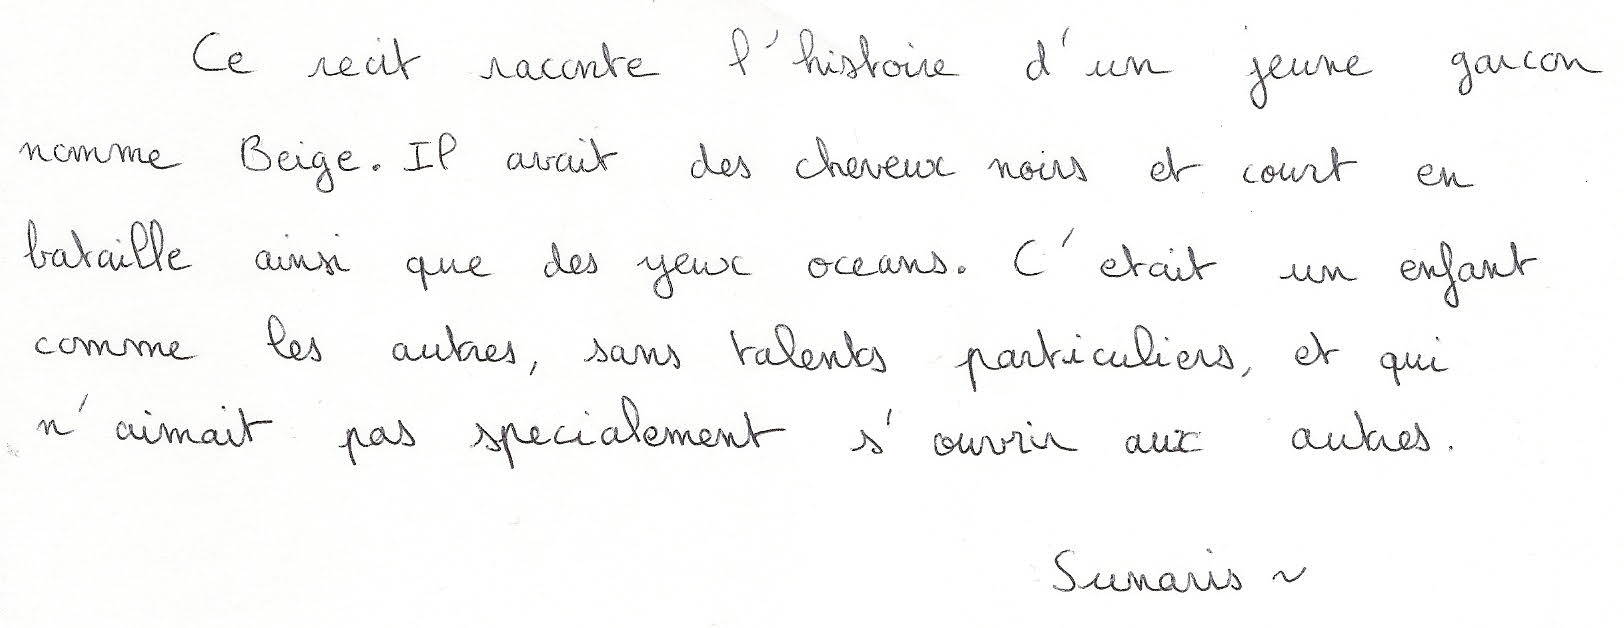 Ce recit raconte l'histoire d'un jeune garcon
nomme Beige. Il avait des cheveux noirs et court en
bataille ainsi que des yeux oceans. C'etait un enfant
comme les autres, sans talents particuliers, et qui
n'aimait pas specialement s'ouvrir aux autres.
Sunaris ~